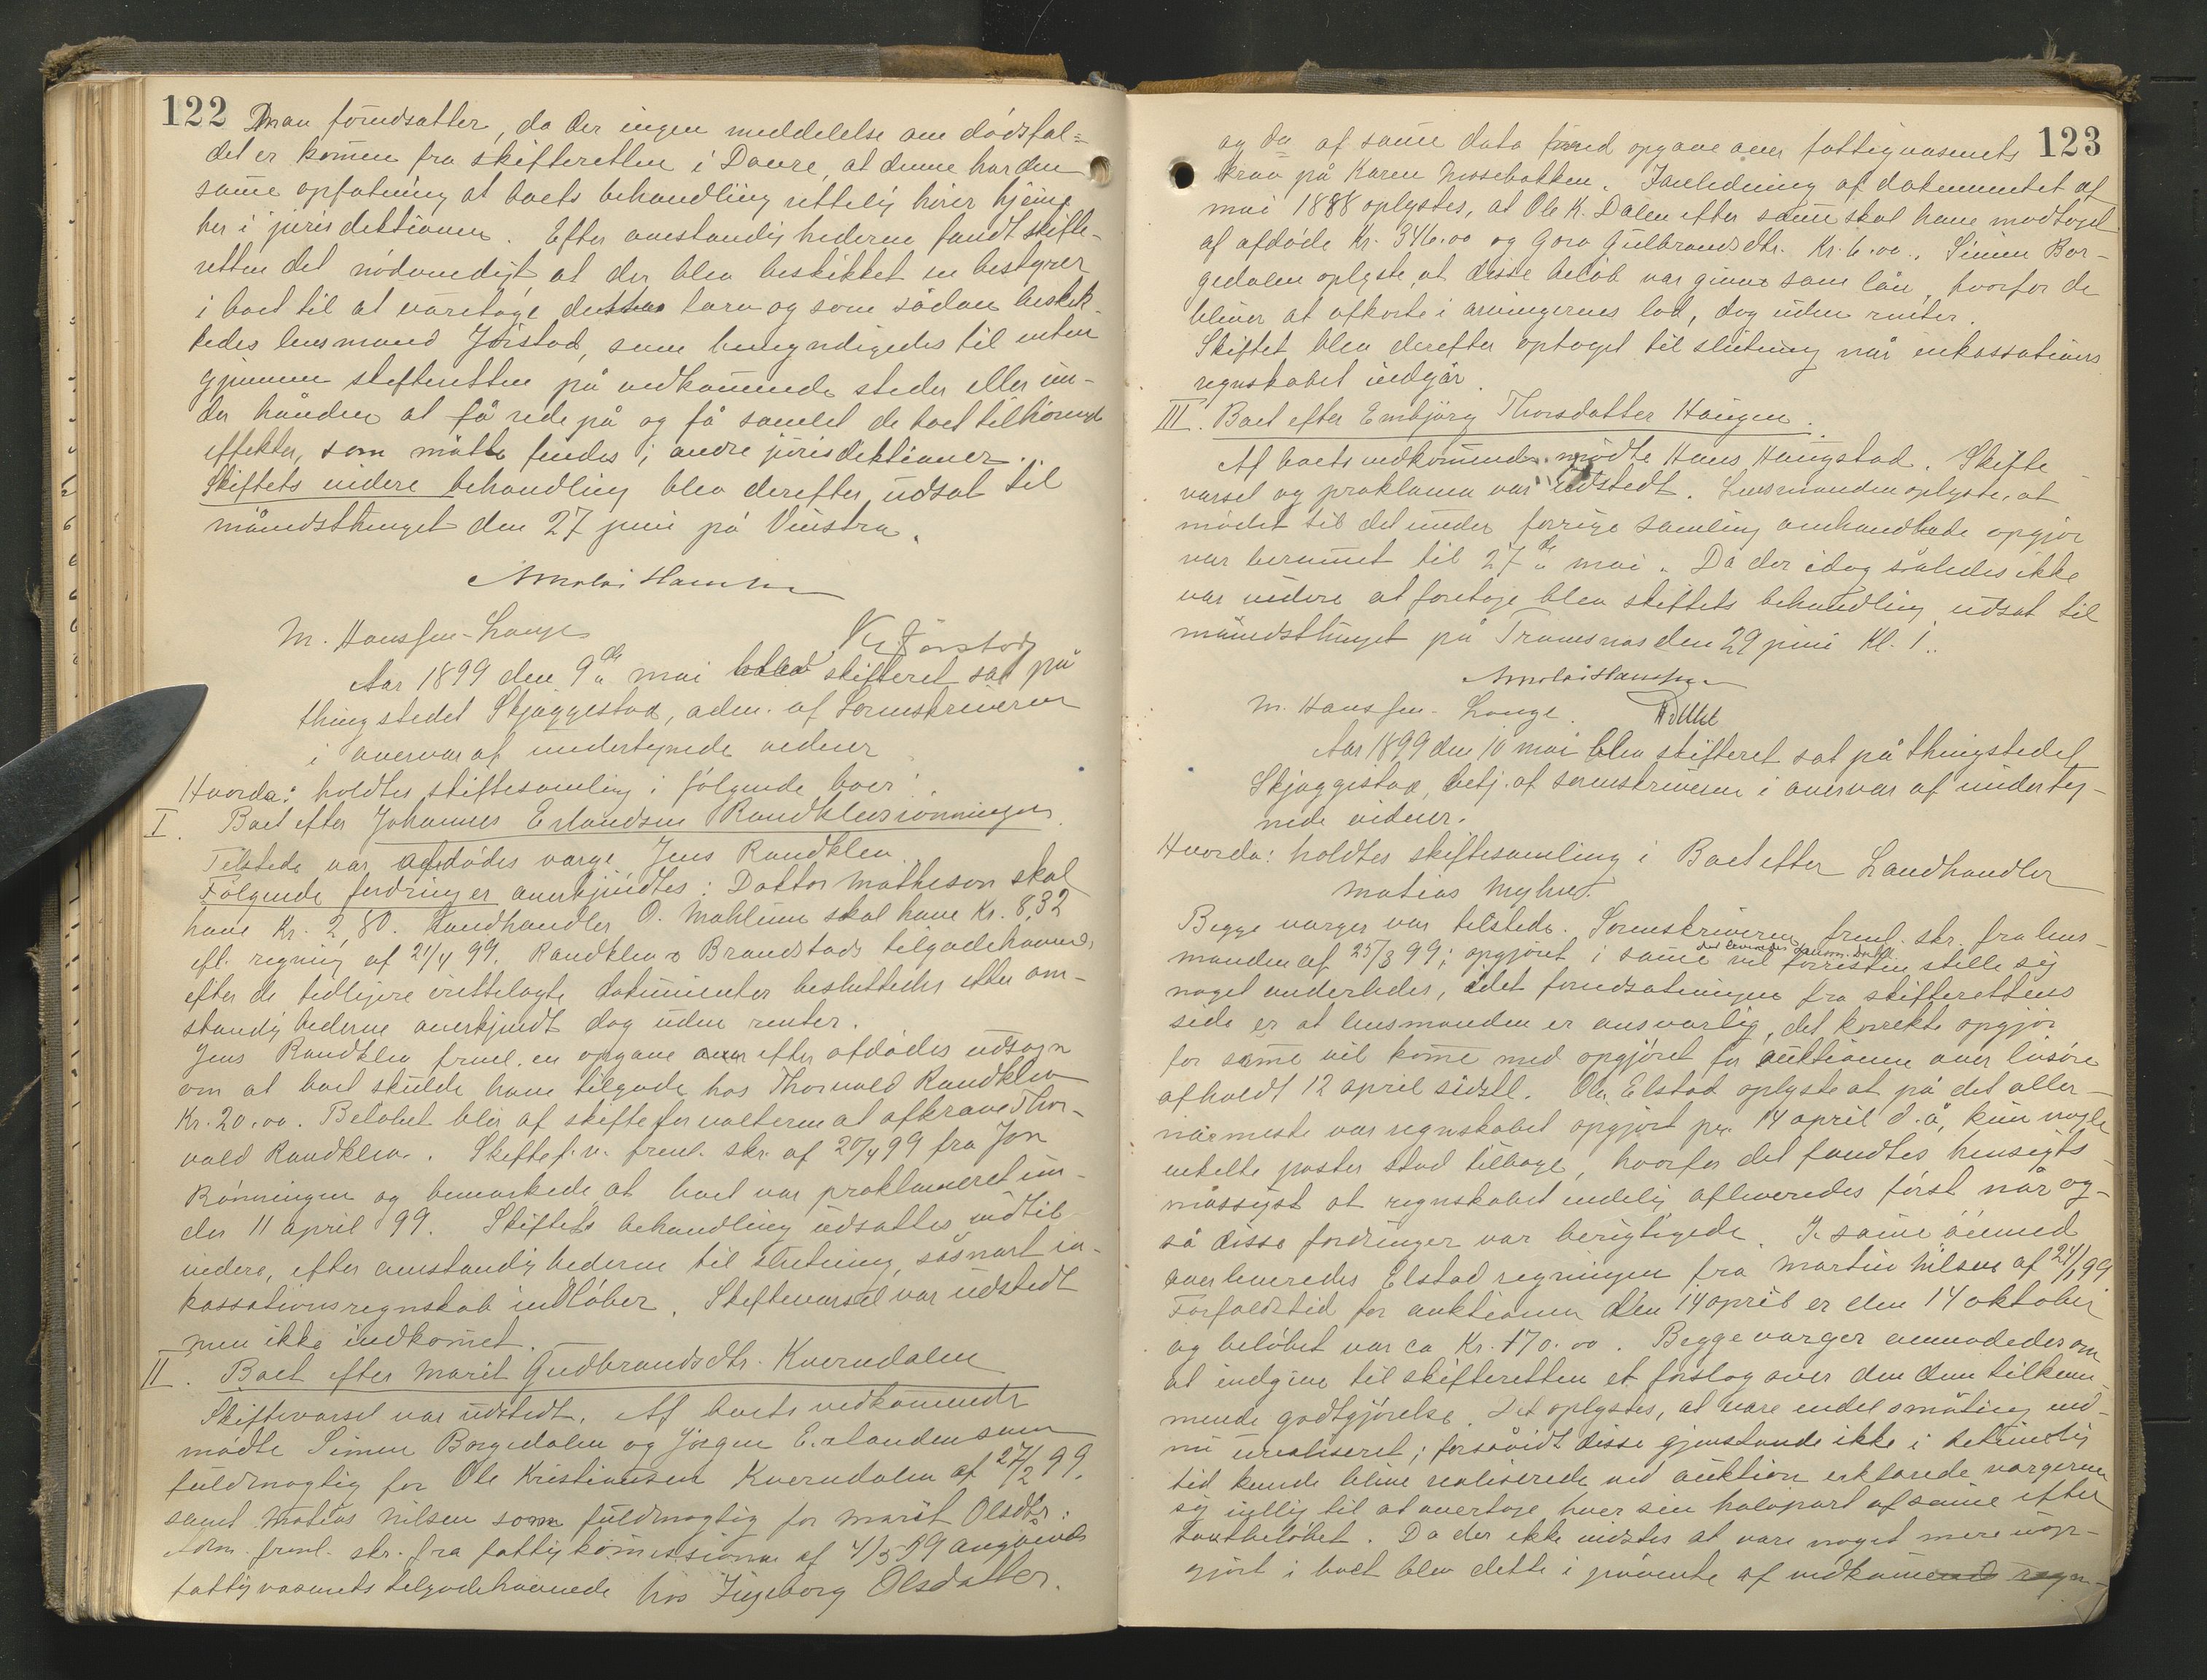 122
Man forudsatter, da der ingen meddelelse om dödsfal=
det er kommen fra skifteretten i Dovre, at denne har den
samme opfatning at boets behandling rettelig hörer hjem
her i jurisdiktionen. Efter omstændighederne fandt skifte-
retten det nödvendigt, at der blev beskikket en bestyrer
i boet til at varetage dettes tarv og som sådan beskik-
kedes lensmand Jörstad, som bemyndigedes til enten
gjennem skifteretten på vedkommende steder eller un-
der hånden at få rede på og få samlet de boet tilhörende
effekter, som måtte findes i andre jurisdiktioner.
Skiftets videre behandling blev derefter udsat til
månedsthinget den 27 juni på Vinstra.
Nikolai Hanssen
M. Hanssen-Lange
Jörstad
Aar 1899 den 9de mai blev skifteret sat på
thingstedet Skjæggestad, adm. af Sorenskriveren
i overvær af undertegnede vidner
Hvorda: holdtes skiftesamling i fölgende boer:
I. Boet efter Johannes Erlandsen Randklevrönningen.
Tilstede var afdödes værge Jens Randklev.
Fölgende fordringer anerkjendtes: Doktor Matheson skal
have Kr. 2,80. Landhandler O. Mæhlum skal have Kr. 8,32
efl. regning af 21/4 99. Randklev & Brandstads tilgodehavende
efter de tidligere irettelagte dokumenter besluttedes efter om-
stændighederne anerkjendt dog uden renter.
Jens Randklev freml. en opgave over efter afdödes udsagn
om at boet skulde have tilgode hos Thorvald Randklev
Kr. 20.00. Belöbet blir af skifteforvalteren at afkræve Thor-
vald Randklev. Skiftef.v. freml. skr. af 20/4 99 fra Jon
Rönningen og bemærkede at boet var proklameret un-
der 11 april 99. Skiftets behandling udsattes indtil
videre, efter omstændighederne til slutning, såsnart in-
kassationsregnskab indlöber. Skiftevarsel var udstedt
men ikke indkommet.
II. Boet efter Marit Gudbrandsdtr. Kverndalen
Skiftevarsel var udstedt. Af boets vedkommende
mödte Simen Borgedalen og Jörgen Erlandsen som
fuldmægtig for Ole Kristiansen Kverndalen af 27/2 99.
samt Matias Nilsen som fuldmægtig for Marit Olsdtr:
Adm. freml. skr. fra fattigkommissionen af 4/5 99 angående
fattigvæsenets tilgodehavende hos Ingeborg Olsdatter.
123
og do af samme dato med opgave over fattigvæsenets
krav på Karen Mosebakken. I anledning af dokumentet af
mai 1888 oplystes, at Ole K. Dalen efter samme skal have modtaget
af afdöde Kr. 346.00 og Goro Gulbrandsdtr. Kr. 6.00. Simen Bor-
gedalen oplyste, at disse belöb var givne som lån, hvorfor de
bliver at afkorte i arvingernes lod, dog uden renter.
Skiftet blev derefter optaget til slutning når inkassations
regnskabet indgår.
III. Boet efter Embjörg Thorsdatter Haugen.
Af boets vedkommende mödte Hans Haugstad. Skifte
varsel og proklama var udstedt. Lensmanden oplyste, at
mödet til det under forrige samling omhandlede opgjör
var berammet til 27de mai. Da der idag således ikke
var videre at foretage blev skiftets behandling udsat til
månedsthinget på Tromsnes den 29 juni Kl. 1.
Nikolai Hanssen
M. Hanssen-Lange.
Aar 1899 den 10 mai blev skifteret sat på thingstedet
Skjæggestad, betj. af sorenskriveren i overvær af underteg-
nede vidner.
Hvorda: holdtes skiftesamling i Boet efter Landhandler
Matias Myhre.
Begge værger var tilstede. Sorenskriveren freml. skr. fra lens-
manden af 25/3 99; opgjöret i samme vil forresten stille sig
noget anderledes, idet forudsætningen fra skifterettens
side er at lensmanden er ansvarlig, det korrekte opgjör
for samme vil komme med opgjöret for auktionen over lösöre
afholdt 12 april sidstl. Ole Elstad oplyste at på det aller-
nærmeste var regnskabet opgjort pr. 14 april d.å, kun nogle
enkelte poster stod tilbage, hvorfor det fandtes hensigts-
mæssigst at regnskabet endelig afleveredes först når og-
så disse fordringer var berigtigede. I samme öiemed
overleveredes Elstad regningen fra Martin Nilsen af 24/1 99
Forfaldstid for auktionen den 14 april er den 14 oktober
og belöbet var ca Kr. 170.00. Begge værger anmodedes om
at indgive til skifteretten et forslag over den dem tilkom-
mende godtgjörelse. Det oplystes, at være endel småting end-
nu urealiseret; forsåvidt disse gjenstande ikke i betimelig
tid kunde blive realiserede ved auktion erklærede værgerne
sig villig til at overtage hver sin halvpart af samme efter
taxtbelöbet. Da der ikke vidstes at være noget mere uop-
gjort i boet blev dette i påvente af vedkommende regn-